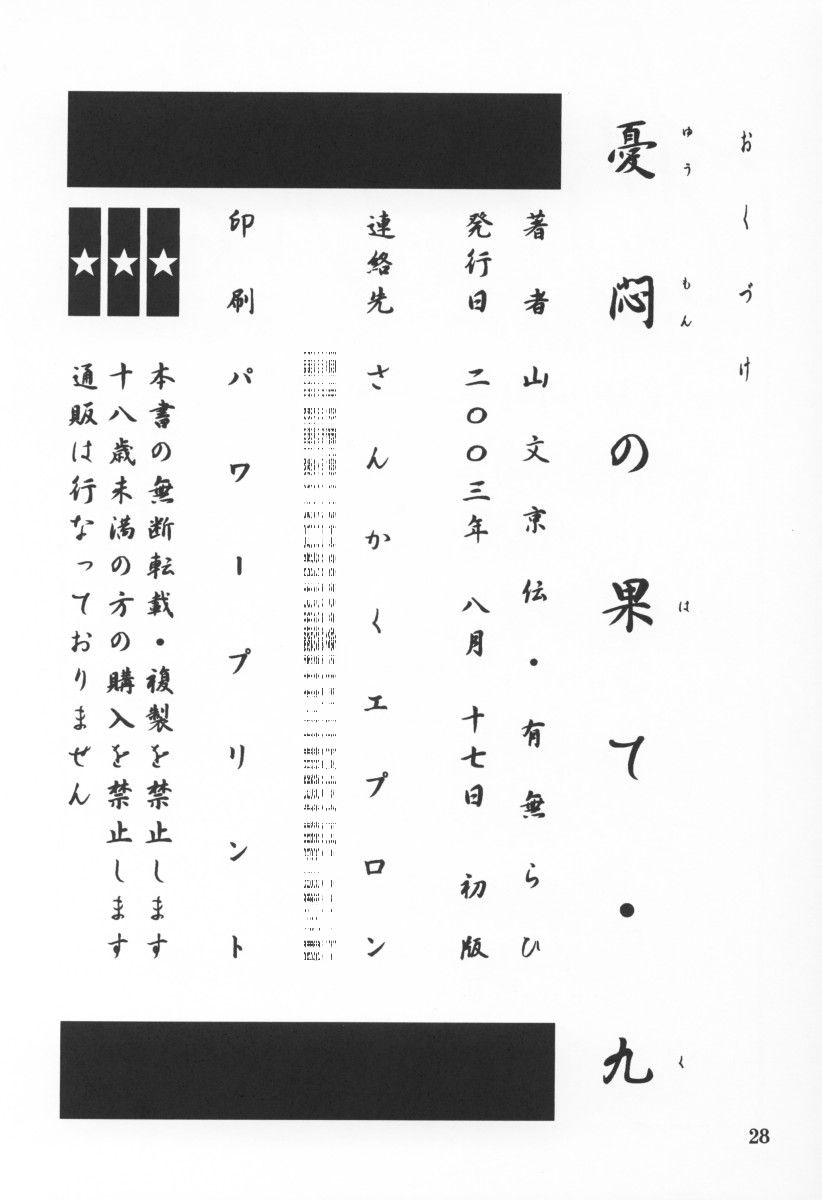 おくづけ
憂悶の果て・九
ゆうもん は く
著者 山文京伝・有無らひ
発行日 二〇〇三年 八月 十七日 初版
連絡先 さんかくエプロン
印刷 パワープリント
★ 本書の無断転載・複製を禁止します
★ 十八歳未満の方の購入を禁止します
★ 通販は行なっておりません
28